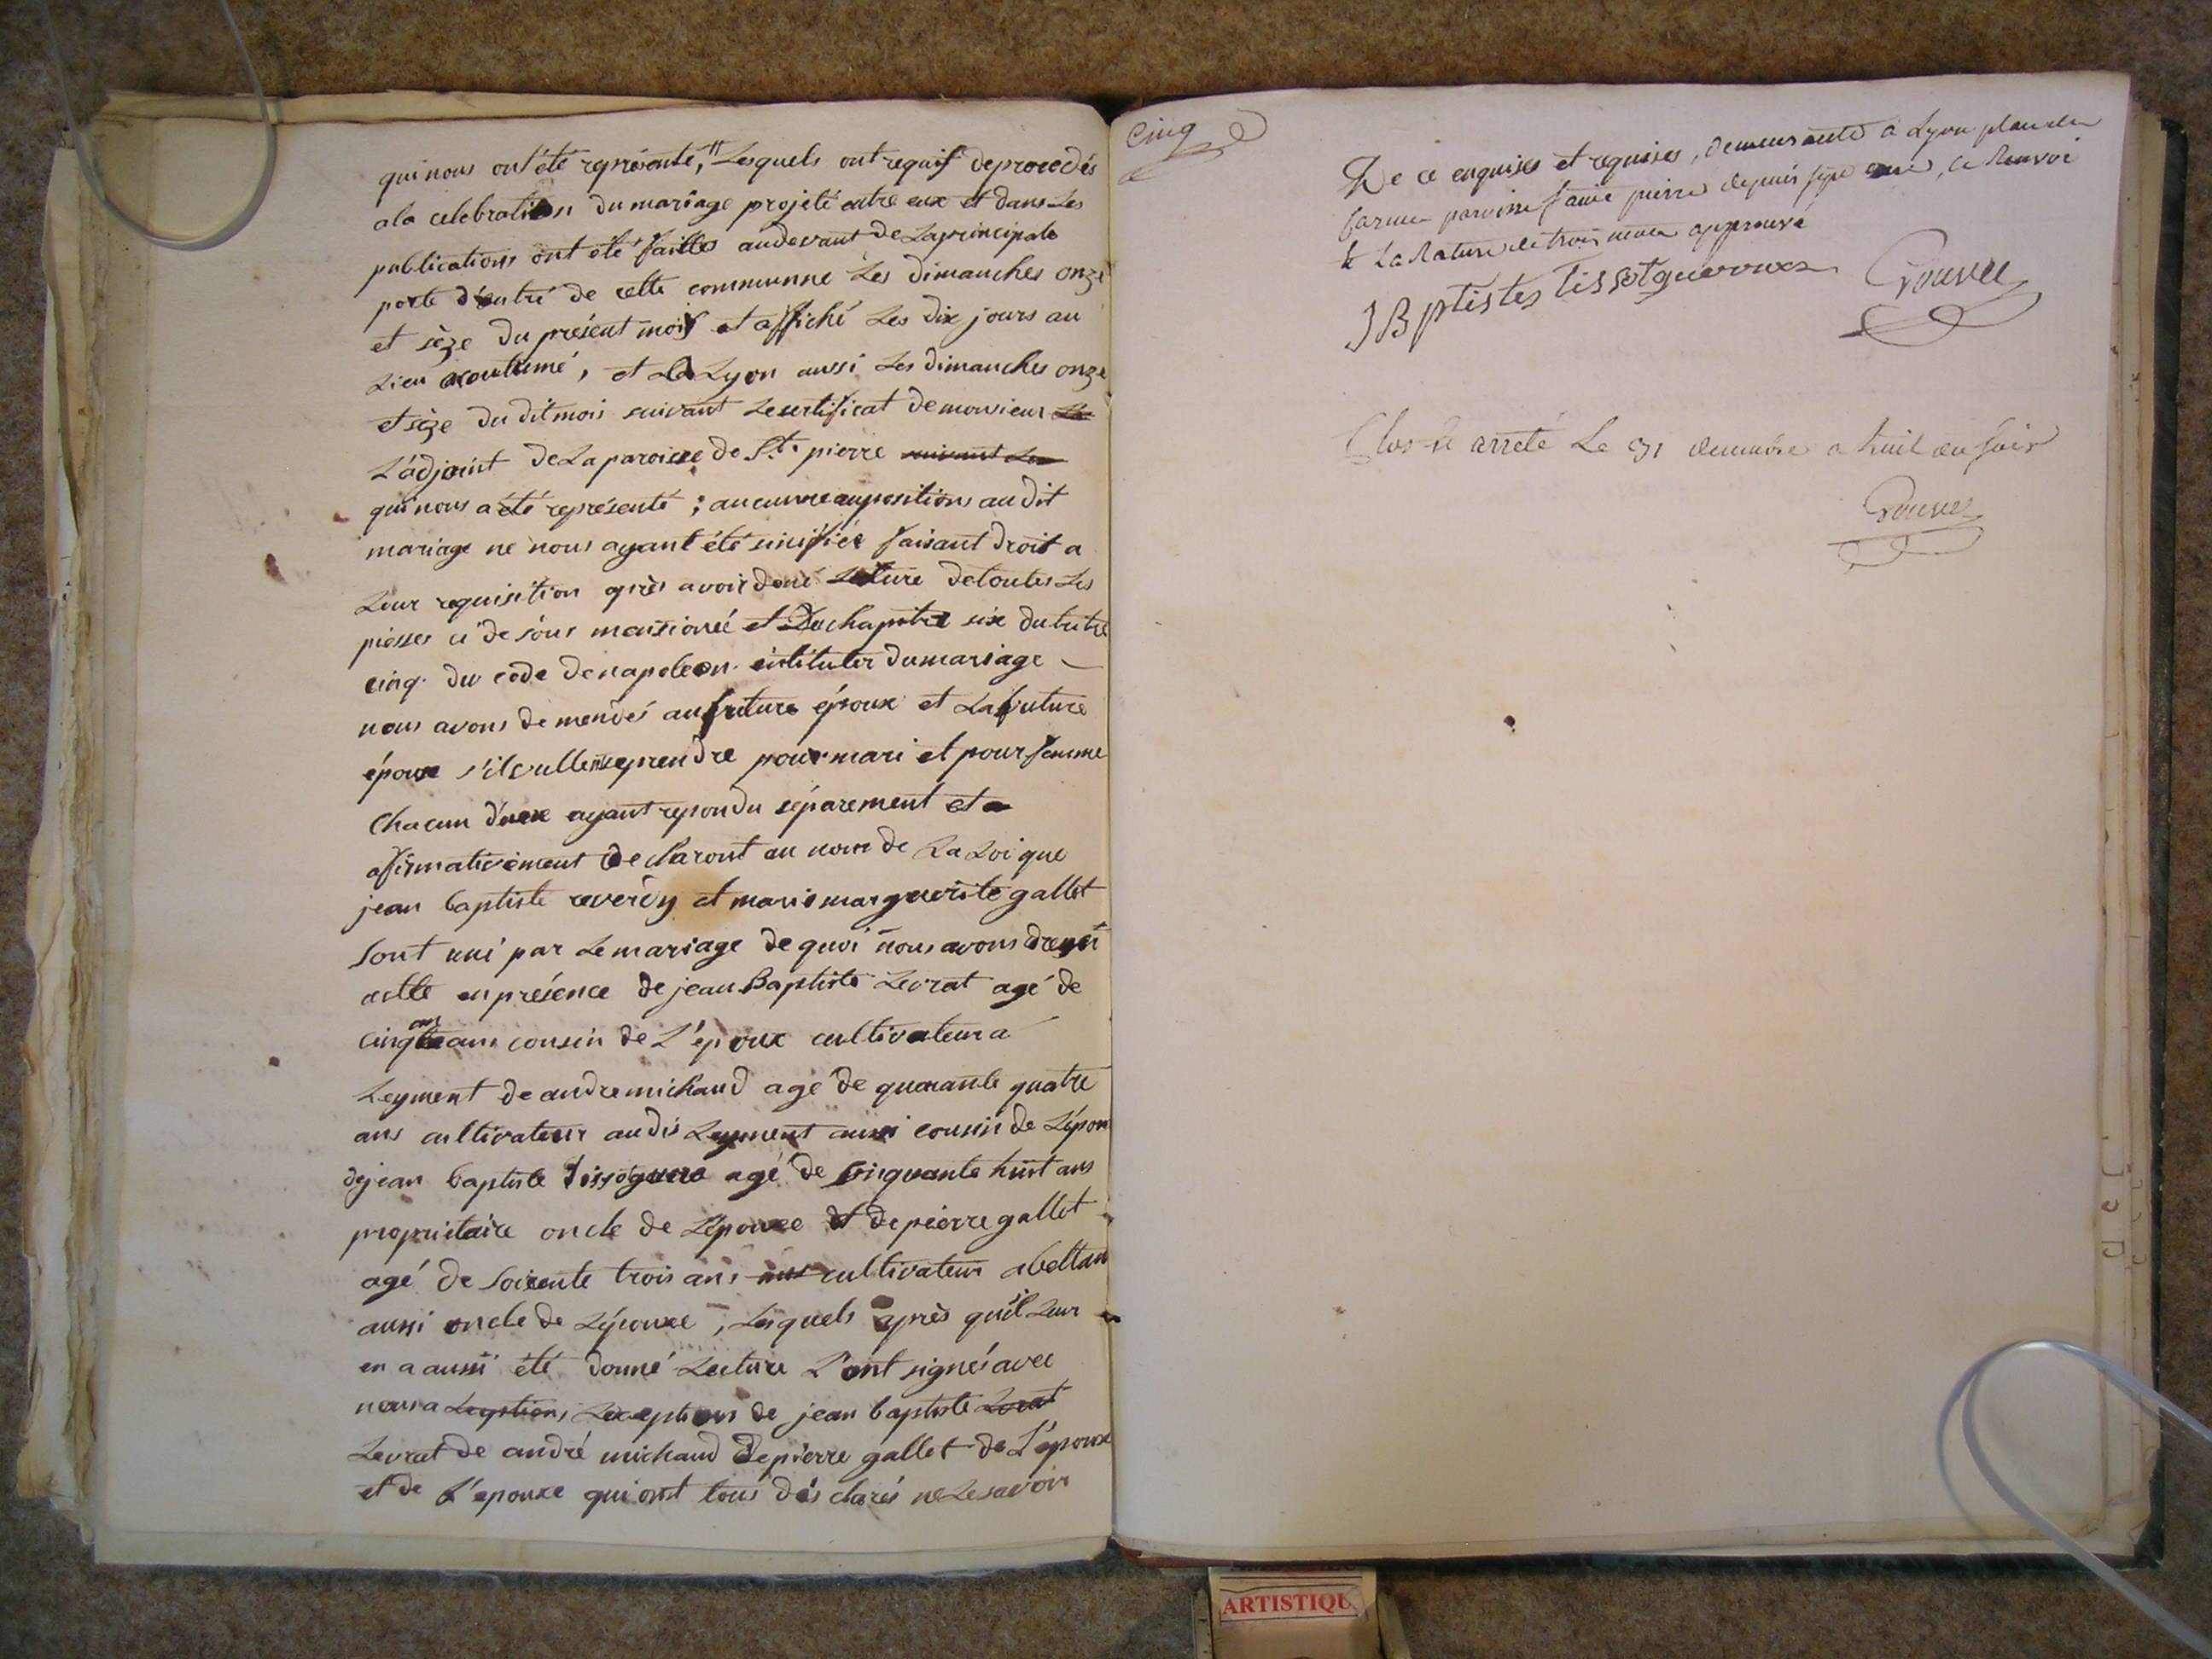 qui nous ont été représenté, Lesquels ont requis de procedés
a la celebration du mariage projeté entre eux et dans Les
publications ont été faittes audevant de La principale
porte d'entré de cette communne Les dimanches onze
et sèze du présent mois et affiché Les dix jours au
Lieu acoutumé, et a Lyon aussi Les dimanches onze
et sèze du dit mois suivant Le sertificat de monsieur
L'adjoint de La paroisse de St. pierre suivant Le
qui nous a été représenté ; aucunne auppositions au dit
mariage ne nous ayant été sinifiée faisant droit a
Leur requisition après avoir doné Lecture de toutes Les
piesses ci desous mensionné et Du chapitre six du titre
cinq du code de napoleon intituler du mariage
nous avons demendés au future époux et La future
épouse s'il vullent se prendre pour mari et pour femme
Chacun d'eux ayant repondu séparement et
affirmativement declaront au nom de La Loi que
jean baptiste reverdy et marie marguerite gallet
sont uni par Le mariage de quoi nous avons dressé
actte en présence de jean Baptiste Levrat agé de
cinquante ans cousin de L'époux cultivateur a
Leyment de andre michaud agé de quarante quatre
ans cultivateur au dis Leyment aussi cousin de L'épou
de jean baptiste tissotguere agé de cinquante huit ans
propriétaire oncle de L'épouse et de pierre gallet
agé de soixente trois ans cultivateur a bettan
aussi oncle de L'épouse, Lesquels après qu'il Leur
en a aussi été donné Lecture L'ont signés avec
nous a Lexeptions de jean baptiste
Levrat de andré michaud de pierre gallet de L'époux
et de L'epouse qui ont tous dés clarés ne Le savoir
Cinq
De ce enquises et requises, demeurante a Lyon place des
carmes paroisse saint pierre depuis sept ans, ce Renvoi
& La Rature de trois mots approuvé
J B ptistes tissotguerroux
Clos et arreté Le 31 decembre a huit du soir